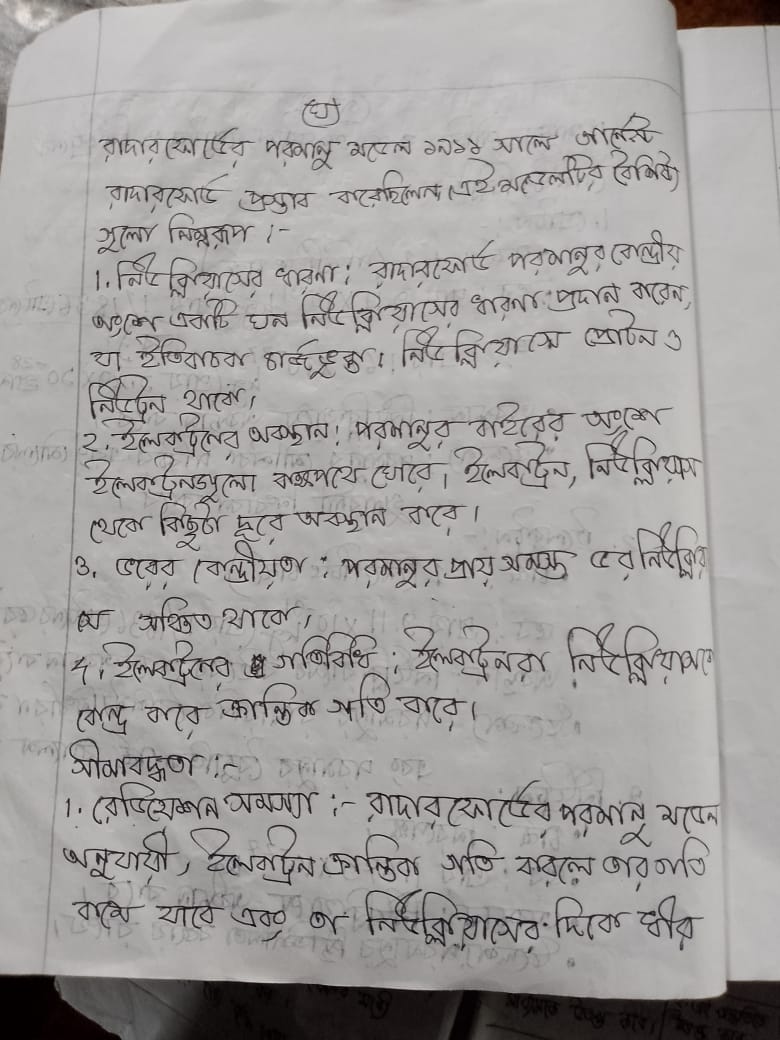 (ঘ)
রাদারফোর্ডের পরমানু মডেল ১৯১১ সালে আর্নেস্ট
রাদারফোর্ড প্রস্তাব করেছিলেন। এই মডেলটির বৈশিষ্ট্য
গুলো নিম্নরূপ :-
1. নিউক্লিয়াসের ধারনা : রাদারফোর্ড পরমানুর কেন্দ্রীয়
অংশে একটি ঘন নিউক্লিয়াসের ধারনা প্রদান করেন,
যা ইতিবাচক চার্জযুক্ত। নিউক্লিয়াসে প্রোটন ও
নিউট্রন থাকে।
২. ইলেকট্রনের অবস্থান : পরমানুর বাইরের অংশে
ইলেকট্রনগুলো কক্ষপথে ঘোরে। ইলেকট্রন, নিউক্লিয়াস
থেকে কিছুটা দূরে অবস্থান করে।
৩. ভরের কেন্দ্রীয়তা : পরমানুর প্রায় সমস্ত ভর নিউক্লিয়া
সে সঞ্চিত থাকে।
৪. ইলেকট্রনের গতিবিধি : ইলেকট্রনরা নিউক্লিয়াসকে
কেন্দ্র করে ক্রান্তিক গতি করে।
সীমাবদ্ধতা :-
1. রেডিয়েশন সমস্যা :- রাদারফোর্ডের পরমানু মডেল
অনুযায়ী, ইলেকট্রন ক্রান্তিক গতি করলে তার গতি
কমে যাবে এবং তা নিউক্লিয়াসের দিকে ধীর